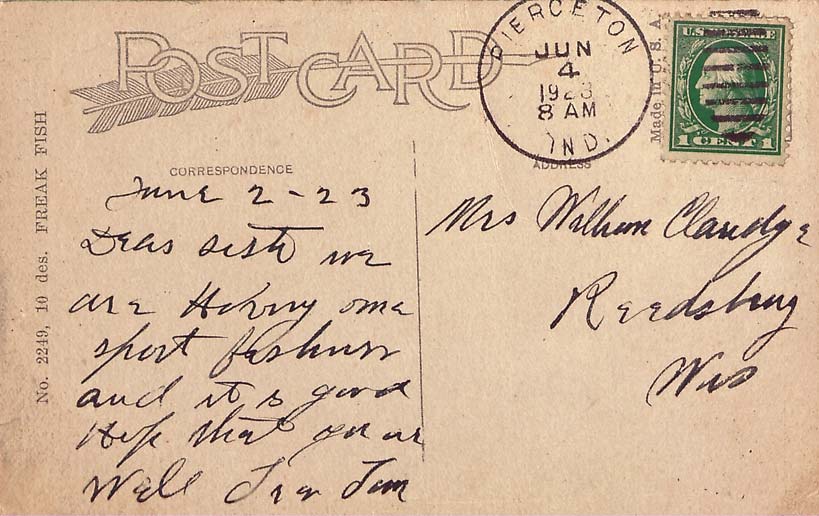 POST CARD
PIERCETON
JUN
4
1923
8 AM
IND.
U.S. POSTAGE
1 CENTS 1
Made in U. S. A.
No. 2249, 10 des. FREAK FISH
CORRESPONDENCE
ADDRESS
June 2-23
Dear sister we
are Having some
sport fishing
and it is good
Hope that you are
Well
Mrs William Claridge
Reedsburg
Wis